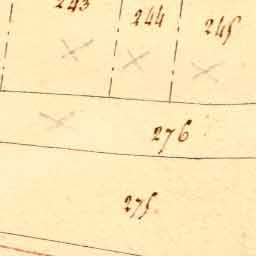 243
244
245
276
275